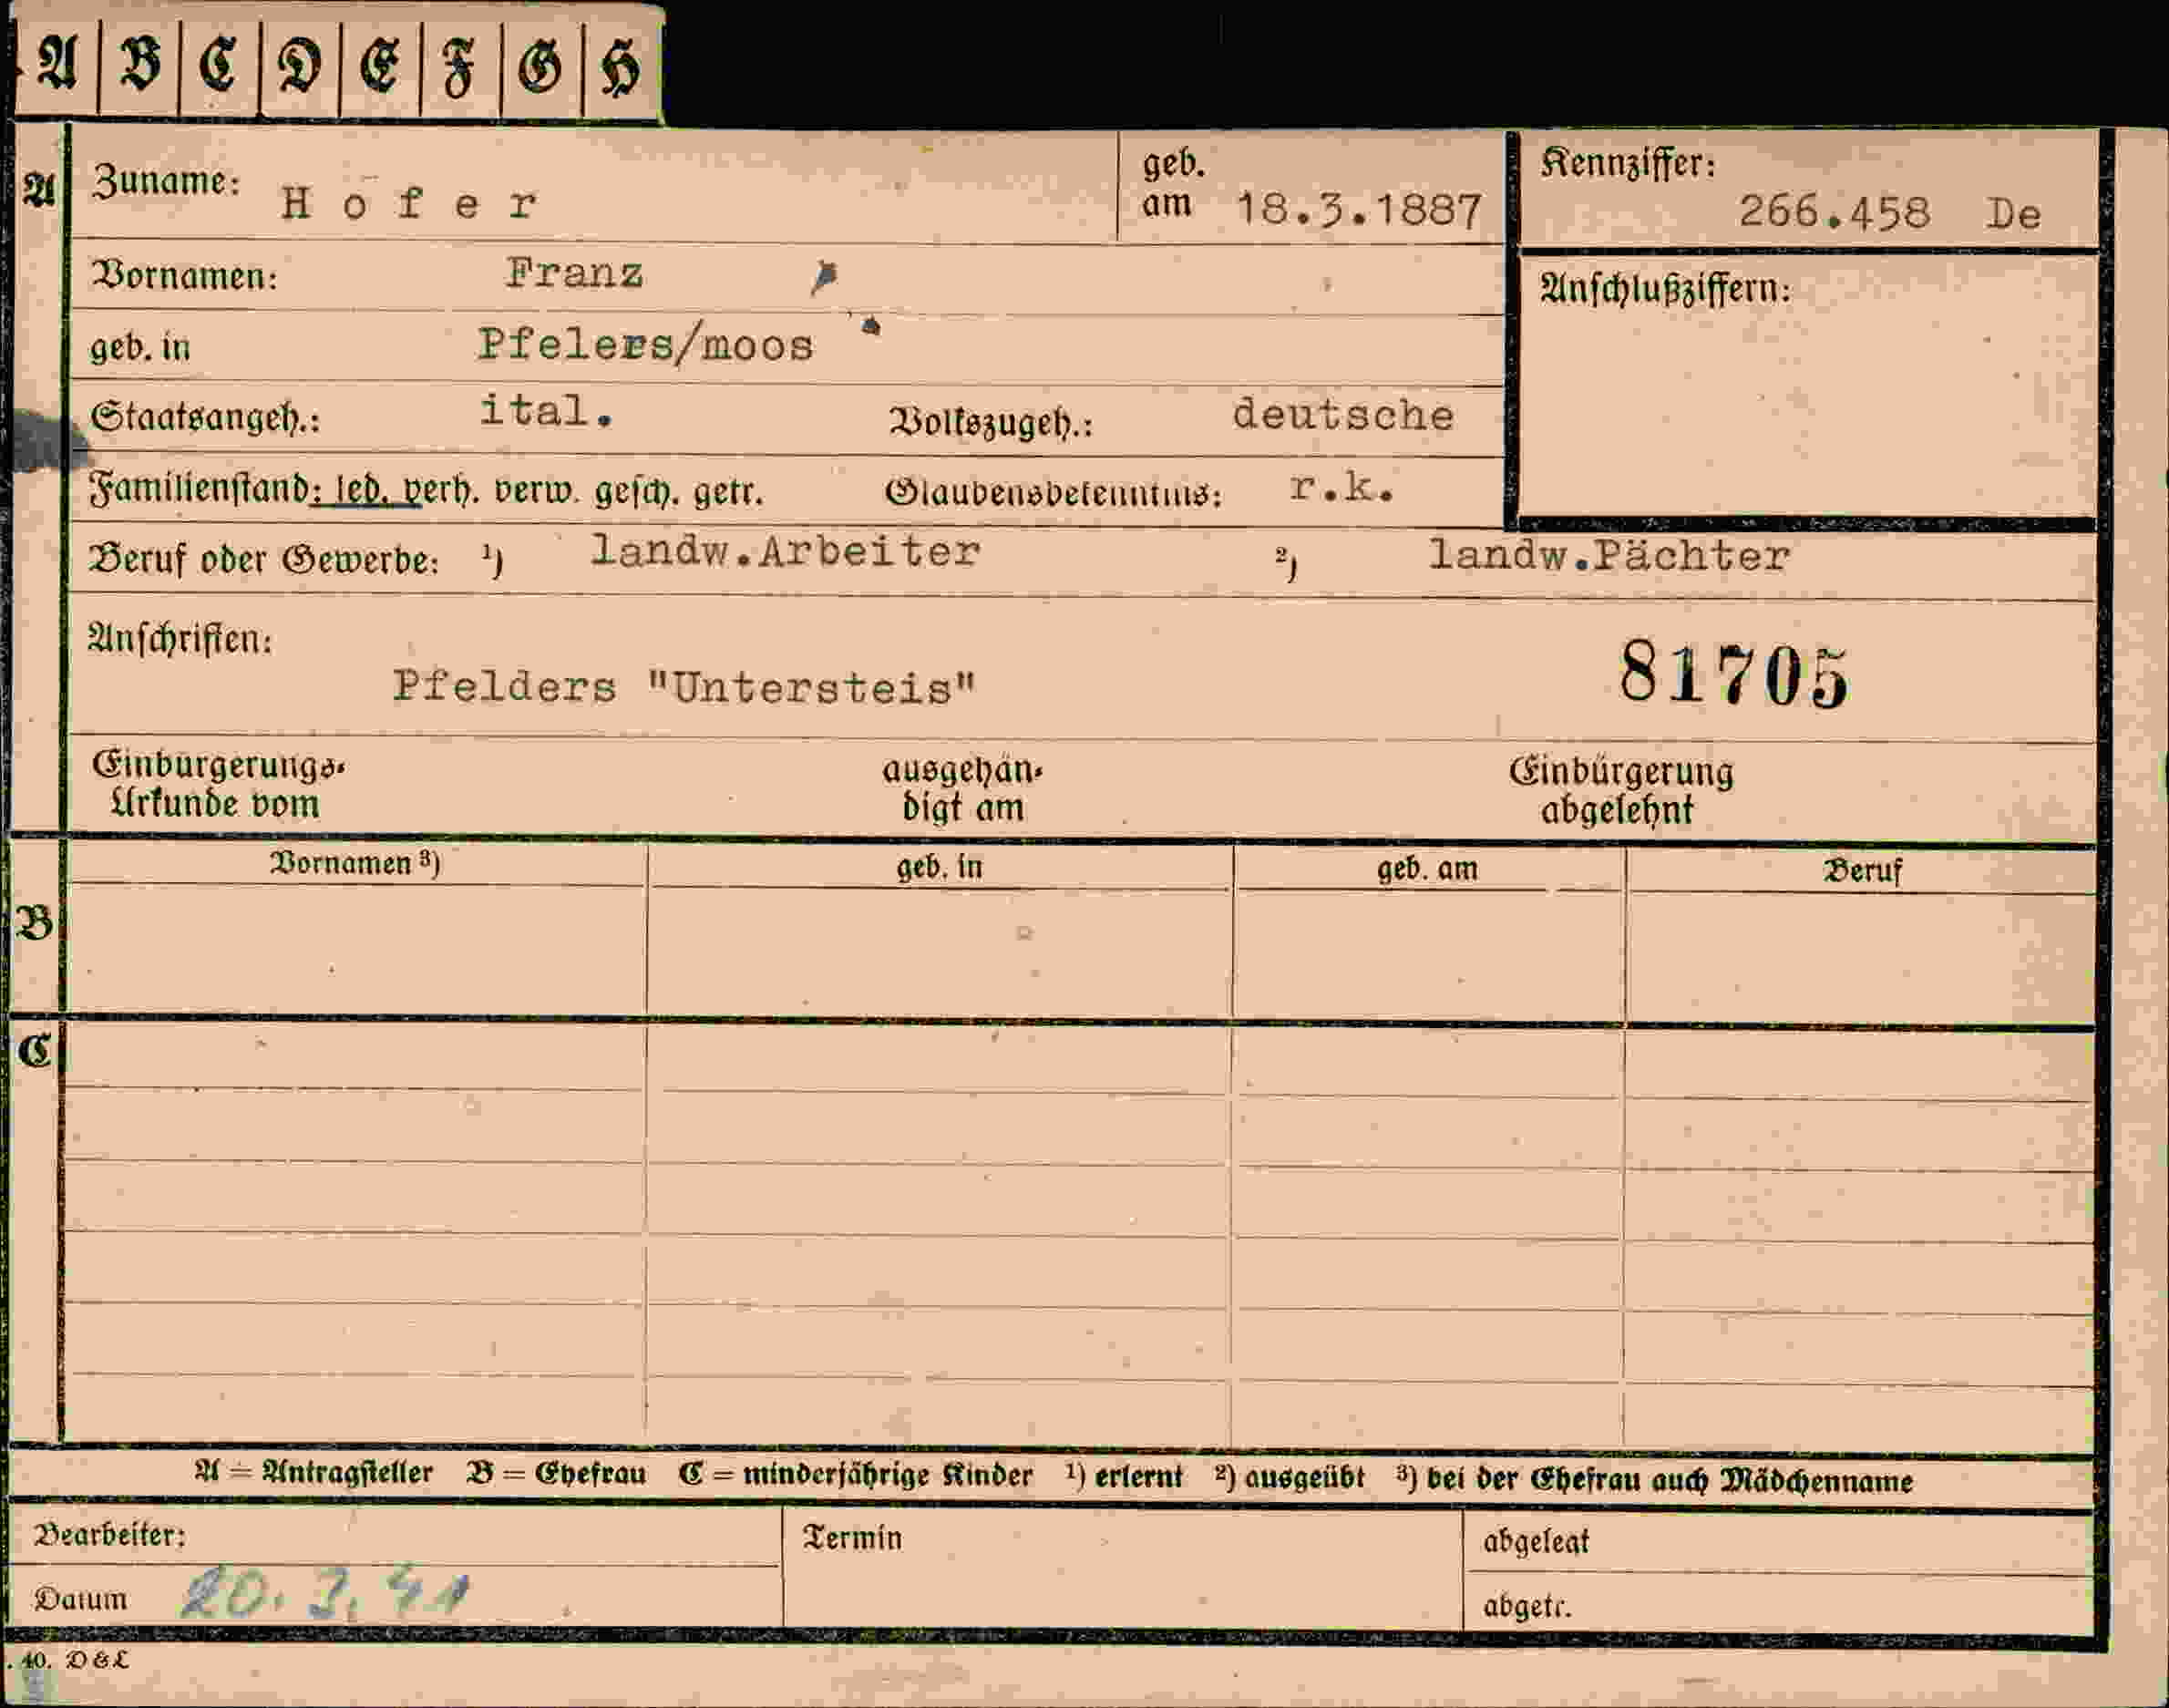 A B C D E F G H
A Zuname: Hofer geb. am 18.3.1887 Kennziffer: 266.458 De
Vornamen: Franz
Anschlußziffern:
geb. in Pfelers/moos
Staatsangeh.: ital. Volkszugeh.: deutsche
Familienstand: led. verh. verw. gesch. getr. Glaubensbekenntnis: r.k.
Beruf oder Gewerbe: ¹) landw.Arbeiter ²) landw.Pächter
Anschriften:
81705
Pfelders "Untersteis"
Einbürgerungs- ausgehän- Einbürgerung
Urkunde vom digt am abgelehnt
Vornamen ³) geb. in geb. am Beruf
B
C
A = Antragsteller B = Ehefrau C = minderjährige Kinder ¹) erlernt ²) ausgeübt ³) bei der Ehefrau auch Mädchenname
Bearbeiter: Termin abgelegt
Datum 20.3.41 abgetr.
. 40. D & L